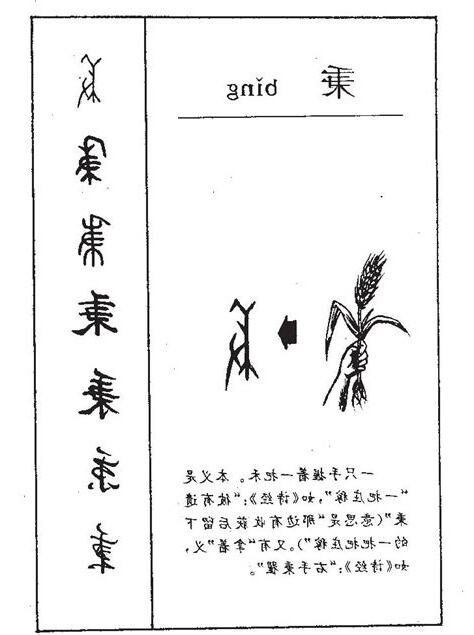 秉
bǐng
一只手握着一把禾。本义是
“一把庄稼”,如《诗经》:“彼有遗
秉”(意思是“那边有收获后留下
的一把把庄稼”)。又有“拿着”义,
如《诗经》:“右手秉翟”。
秉
秉